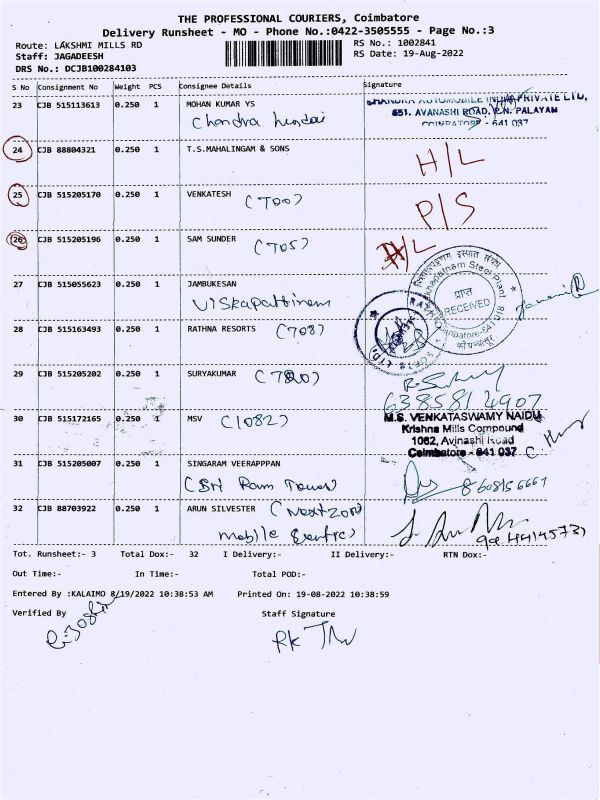 THE PROFESSIONAL COURIERS, Coimbatore
Delivery Runsheet - MO - Phone No.:0422-3505555 - Page No.:3
Route: LAKSHMI MILLS RD
RS No.: 1002841
Staff: JAGADEESH
RS Date: 19-Aug-2022
DRS No.: DCJB100284103
S No Consignment No Weight PCS Consignee Details Signature
23 CJB 515113613 0.250 1 MOHAN KUMAR YS
CHANDRA AUTOMOBILE INDIA PRIVATE LTD,
651. AVANASHI ROAD, P.N. PALAYAM
COIMBATORE - 641 037
24 CJB 88804321 0.250 1 T.S.MAHALINGAM & SONS H/L
25 CJB 515205170 0.250 1 VENKATESH (700) P/S
26 CJB 515205196 0.250 1 SAM SUNDER (705) H/L
27 CJB 515055623 0.250 1 JAMBUKESAN
प्राप्त
RECEIVED
28 CJB 515163493 0.250 1 RATHNA RESORTS (708)
29 CJB 515205202 0.250 1 SURYAKUMAR
6385814907
30 CJB 515172165 0.250 1 MSV (1082)
M.S. VENKATASWAMY NAIDU
Krishna Mills Compound
1082, Avinashi Road
Coimbatore - 641 037
31 CJB 515205007 0.250 1 SINGARAM VEERAPPPAN
32 CJB 88703922 0.250 1 ARUN SILVESTER
mobile
Tot. Runsheet:- 3 Total Dox:- 32 I Delivery:- II Delivery:- RTN Dox:-
Out Time:- In Time:- Total POD:-
Entered By :KALAIMO 8/19/2022 10:38:53 AM Printed On: 19-08-2022 10:38:59
Verified By Staff Signature